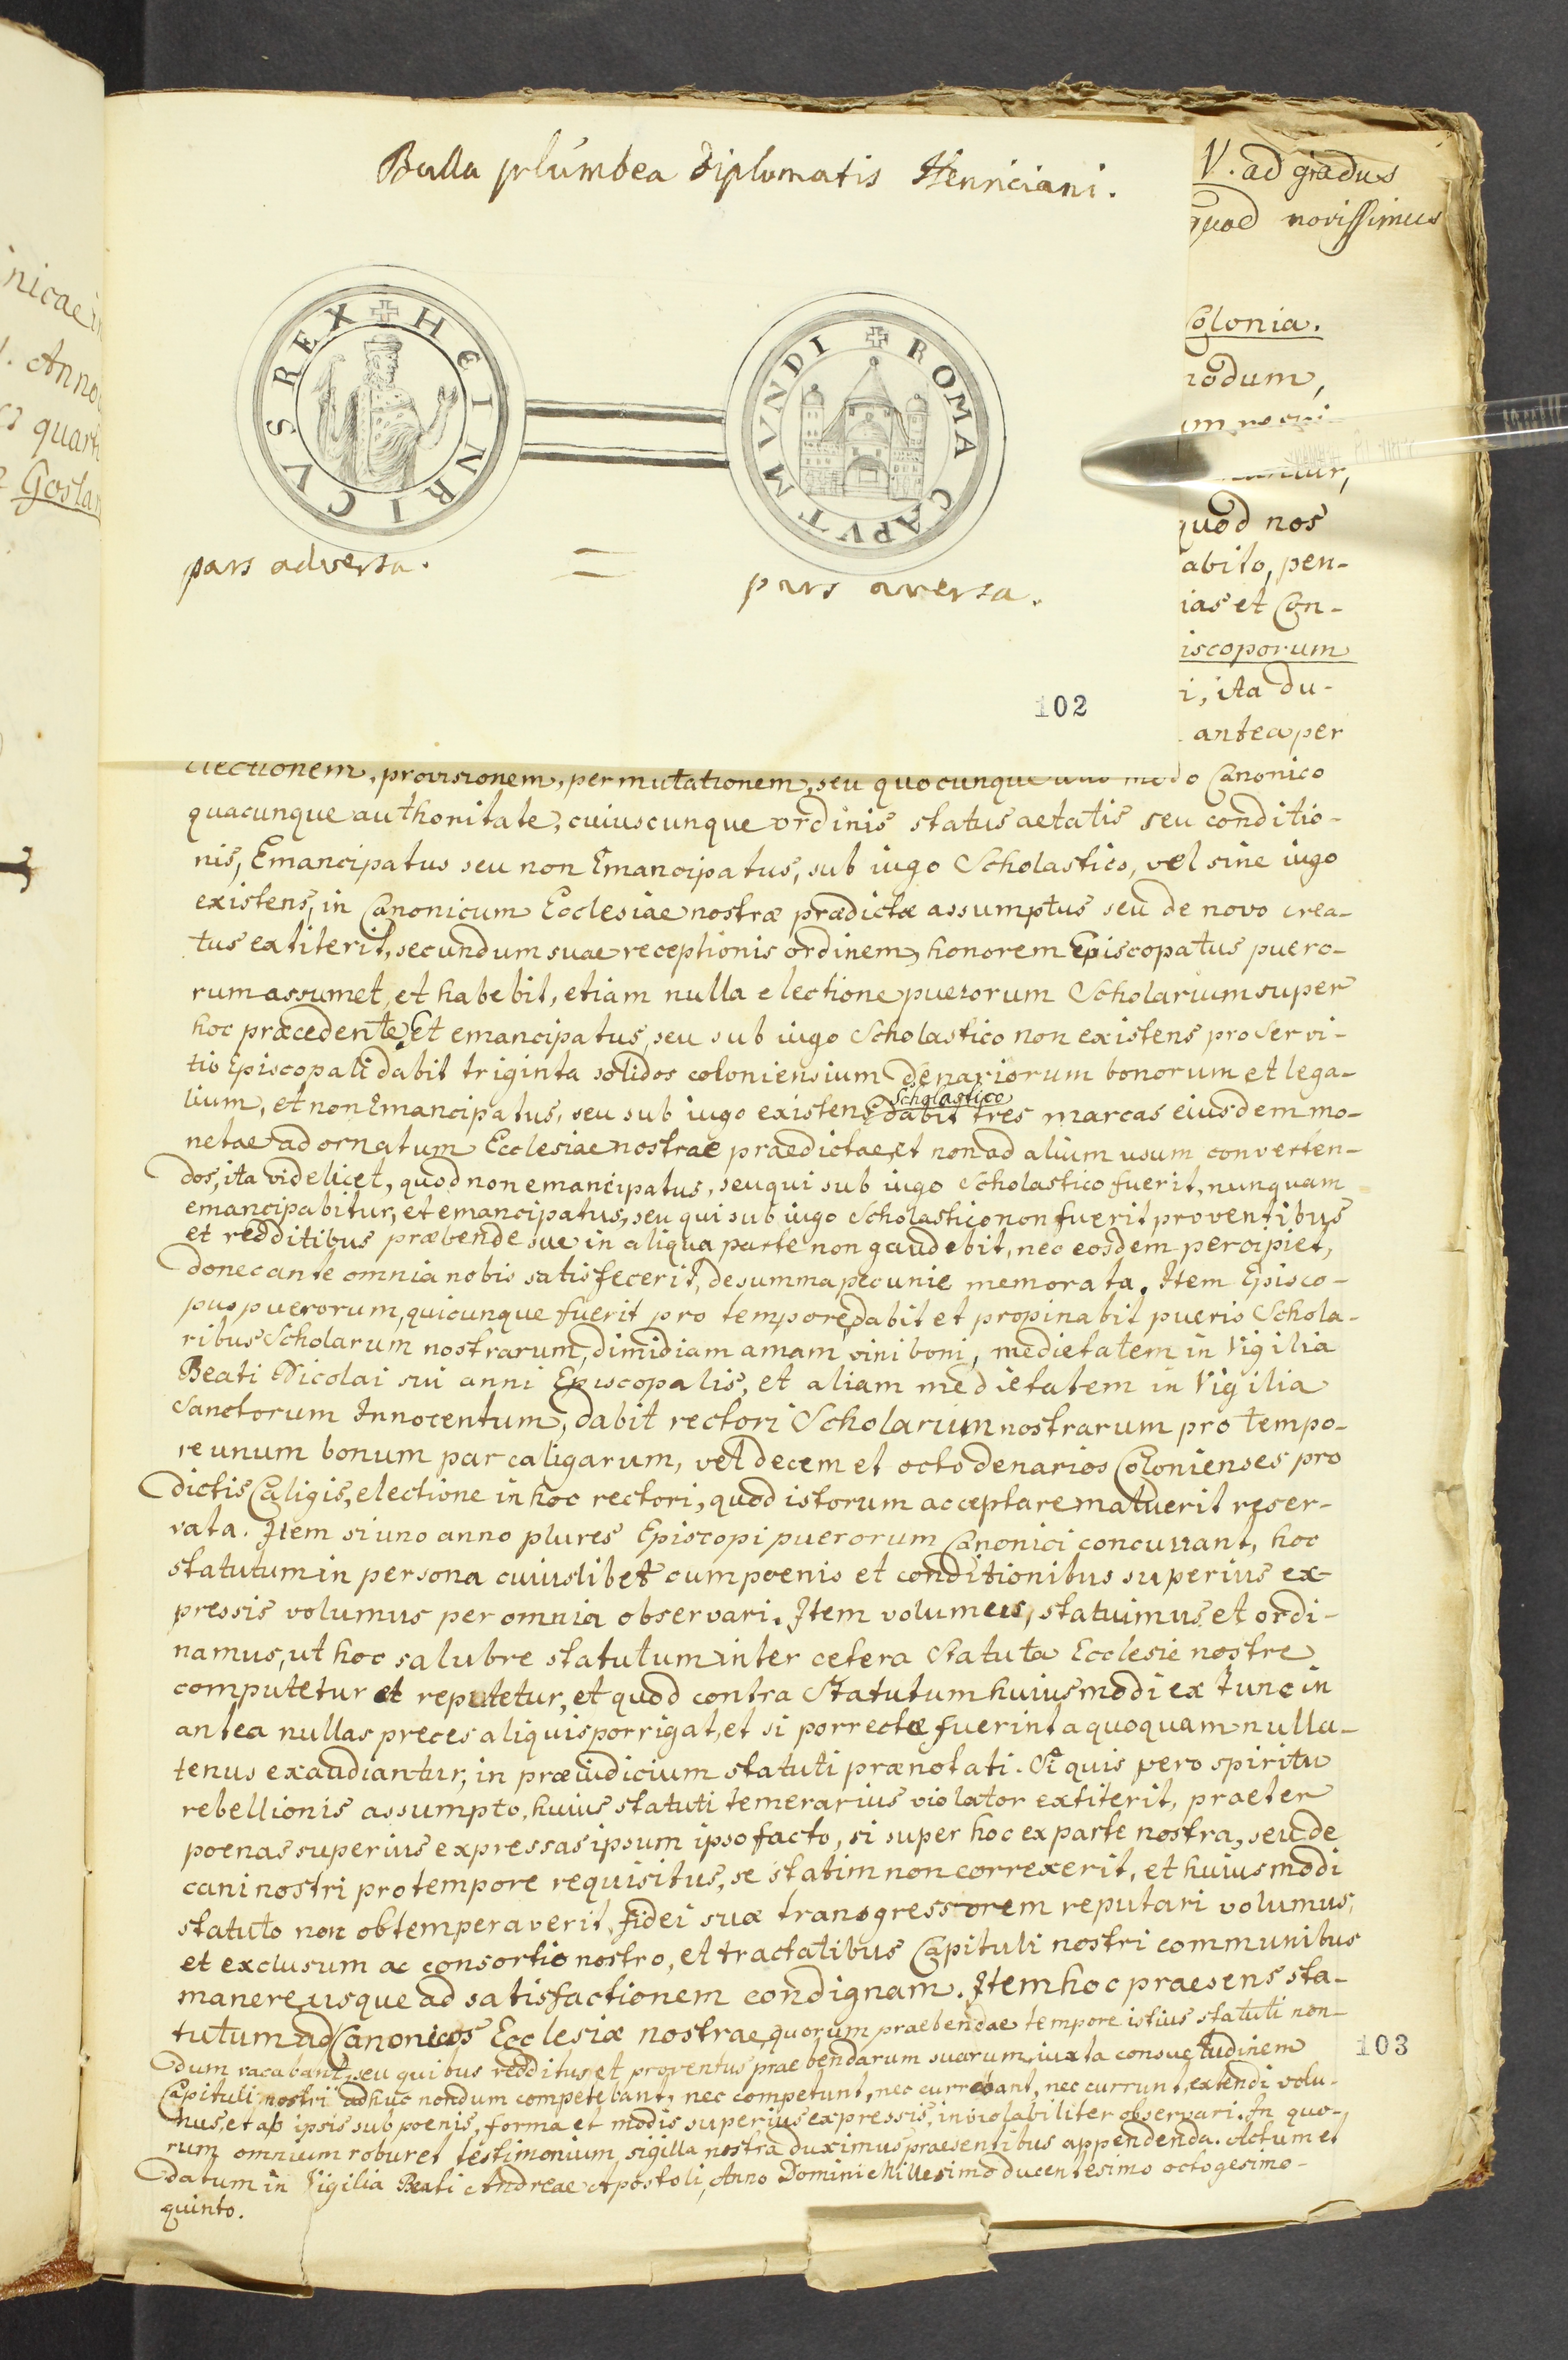 Bulla plúmbea Diplomatis Henriciani.
✠ HEINRICVS REX
✠ ROMA CAPVT MVNDI
pars adversa. = pars aversa.
102
V. ad gradus
quod novissimus
Colonia.
modum,
quod nos
abito, pen-
ias et Con-
iscoporum
i, ita du-
antea per
nicae
Anno
quart
Goslar
electionem, provisionem, permutationem, seu quocunque alio modo Canonico
quacunque authoritate, cuiuscunque ordinis status aetatis seu conditio-
nis, Emancipatus seu non Emancipatus, sub iugo Scholastico, vel sine iugo
existens, in Canonicum Ecclesiae nostræ prædictæ assumptus seu de novo crea-
tus extiterit, secundum suae receptionis ordinem, honorem Episcopatus puero-
rum assumet, et habebit, etiam nulla electione puerorum Scholarium super
hoc præcedente. Et emancipatus, seu sub iugo Scholastico non existens pro servi-
tio Episcopali dabit triginta solidos coloniensium denariorum bonorum et lega-
lium, et non Emancipatus, seu sub iugo existens Scholastico dabit tres marcas eiusdem mo-
netae ad ornatum Ecclesiae nostrae praedictae, et non ad alium usum converten-
dos, ita videlicet, quod non emancipatus, seu qui sub iugo Scholastico fuerit, nunquam
emancipabitur, et emancipatus, seu qui sub iugo Scholastico non fuerit proventibus
et redditibus præbende sue in aliqua parte non gaudebit, nec eosdem percipiet,
donec ante omnia nobis satisfecerit, de summa pecunie memorata. Item Episco-
pus puerorum, quicunque fuerit pro tempore, dabit et propinabit pueris Schola-
ribus Scholarum nostrarum, dimidiam amam vini boni, medietatem in Vigilia
Beati Nicolai sui anni Episcopalis, et aliam medietatem in Vigilia
Sanctorum Innocentum, dabit rectori Scholarium nostrarum pro tempo-
re unum bonum par caligarum, vel decem et octo denarios Colonienses pro
dictis Caligis, electione in hoc rectori, quod istorum acceptare maluerit reser-
vata. Item si uno anno plures Episcopi puerorum Canonici concurrant, hoc
statutum in persona cuiuslibet cum poenis et conditionibus superius ex-
pressis volumus per omnia observari. Item volumus, statuimus et ordi-
namus, ut hoc salubre statutum inter cetera Statuta Ecclesie nostre
computetur et reputetur, et quod contra Statutum huiusmodi ex tunc in
antea nullas preces aliquis porrigat, et si porrectæ fuerint a quoquam nulla-
tenus exaudiantur, in præiudicium statuti prænotati. Si quis vero spiritu
rebellionis assumpto, huius statuti temerarius violator extiterit, praeter
poenas superius expressas ipsum ipso facto, si super hoc ex parte nostra, seu de
cani nostri pro tempore requisitus, se statim non correxerit, et huiusmodi
statuto non obtemperaverit, fidei suæ transgressorem reputari volumus,
et exclusum ac consortio nostro, et tractatibus Capituli nostri communibus
manere usque ad satisfactionem condignam. Item hoc praesens sta-
tutum ad Canonicos Ecclesiæ nostrae, quorum praebendae tempore istius statuti non-
103
dum vacabant, seu quibus redditus et proventus praebendarum suarum, iuxta consuetudinem
Capituli nostri adhuc nondum competebant, nec competunt, nec currebant, nec currunt, extendi volu-
mus, et ab ipsis sub poenis, forma et modis superius expressis, inviolabiliter observari. In quo-
rum omnium robur et testimonium sigilla nostra duximus praesentibus appendenda. Actum et
datum in Vigilia Beati Andreae Apostoli, Anno Domini Millesimo ducentesimo octogesimo-
quinto.